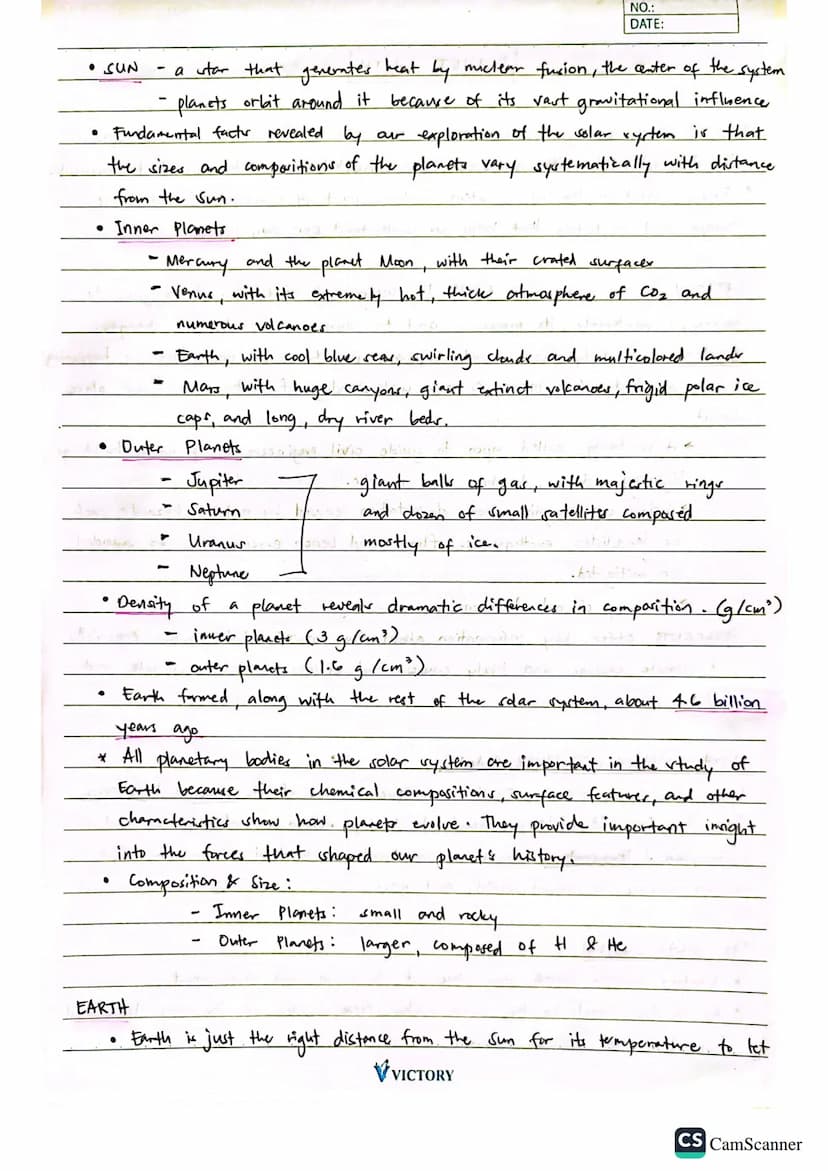 NO.:
DATE:
• SUN - a star that generates heat by nuclear fusion, the center of the system
- planets orbit around it because of its vast gravitational influence
• Fundamental facts revealed by our exploration of the solar system is that
the sizes and compositions of the planets vary systematically with distance
from the sun.
• Inner Planets
- Mercury and the planet Moon, with their crated surfaces
- Venus, with its extremely hot, thick atmosphere of CO₂ and
numerous volcanoes
- Earth, with cool blue seas, swirling clouds and multicolored lands
- Mars, with huge canyons, giant extinct volcanoes, frigid polar ice
caps, and long, dry river beds.
• Outer Planets
- Jupiter giant balls of gas, with majestic rings
- Saturn and dozen of small satellites composed
- Uranus mostly of ice.
- Neptune
• Density of a planet reveals dramatic differences in composition. (g/cm³)
- inner planets (3 g/cm³)
- outer planets (1.6 g/cm³)
• Earth formed, along with the rest of the solar system, about 4.6 billion
years ago
* All planetary bodies in the solar system are important in the study of
Earth because their chemical compositions, surface features, and other
characteristics show how planets evolve. They provide important insight
into the forces that shaped our planet's history.
• Composition & Size:
- Inner Planets: small and rocky
- Outer Planets: larger, composed of H & He
EARTH
• Earth is just the right distance from the sun for its temperature to let
VICTORY
CS CamScanner